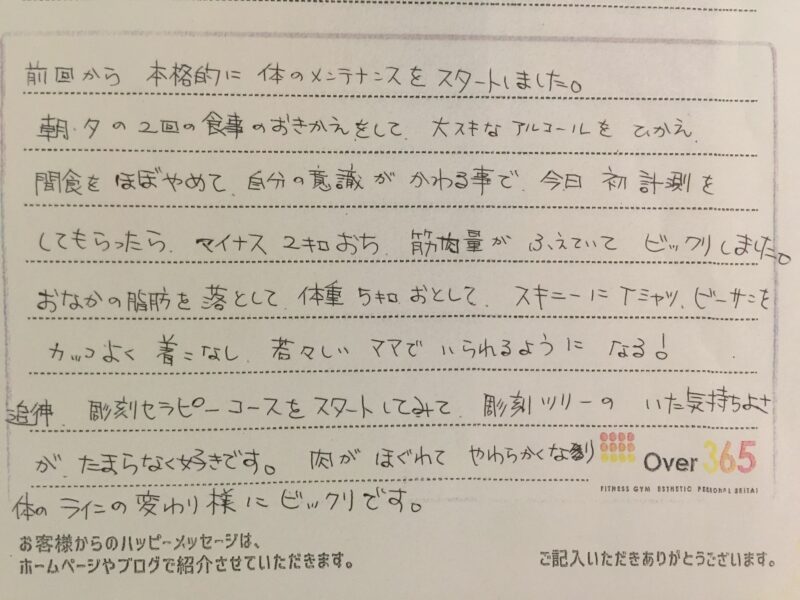 前回から 本格的に 体のメンテナンスを スタートしました。
朝・夕の 2回の食事のおきかえをして、大スキな アルコールを ひかえ
間食を ほぼやめて、自分の意識が かわる事で、今日 初計測を
してもらったら、マイナス 2キロおち、筋肉量が ふえていて ビックリしました。
おなかの脂肪を 落として、体重 5キロ おとして、スキニーに Tシャツ、ビーサンを
カッコよく 着こなし、若々しい ママで いられるように なる!
追伸、彫刻セラピーコースを スタートしてみて、彫刻ツリーの いた気持ちよさ
が、たまらなく好きです。肉が ほぐれて やわらかくなり
Over 365
FITNESS GYM ESTHETIC PERSONAL SEITAI
体の ラインの変わり様に ビックリです。
お客様からのハッピーメッセージは、
ホームページやブログで紹介させていただきます。
ご記入いただきありがとうございます。